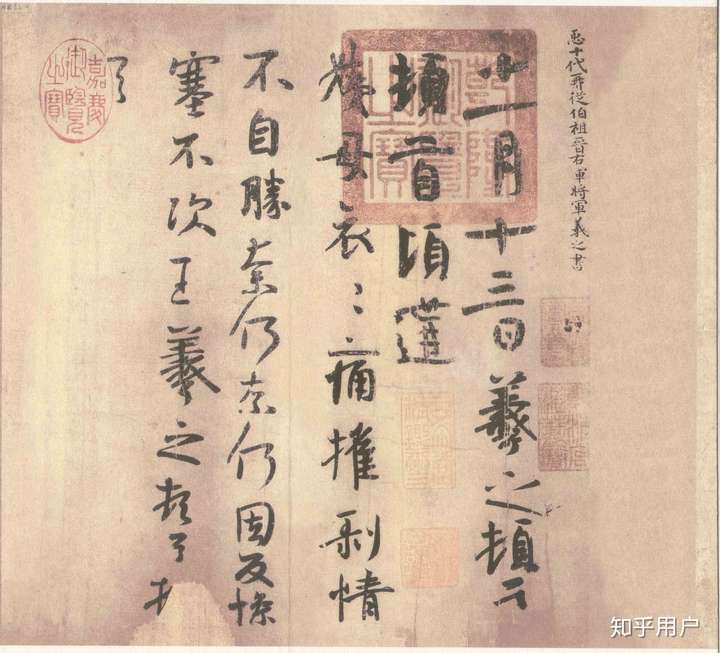 臣十代再從伯祖晉右軍將軍羲之書
十一月十三日羲之頓首
頓首頃遘
姨母哀〻痛摧剝情
不自勝奈何奈何因反慘
塞不次王羲之頓首頓
首
乾隆御覽之寶
嘉慶御覽之寶
知乎用户